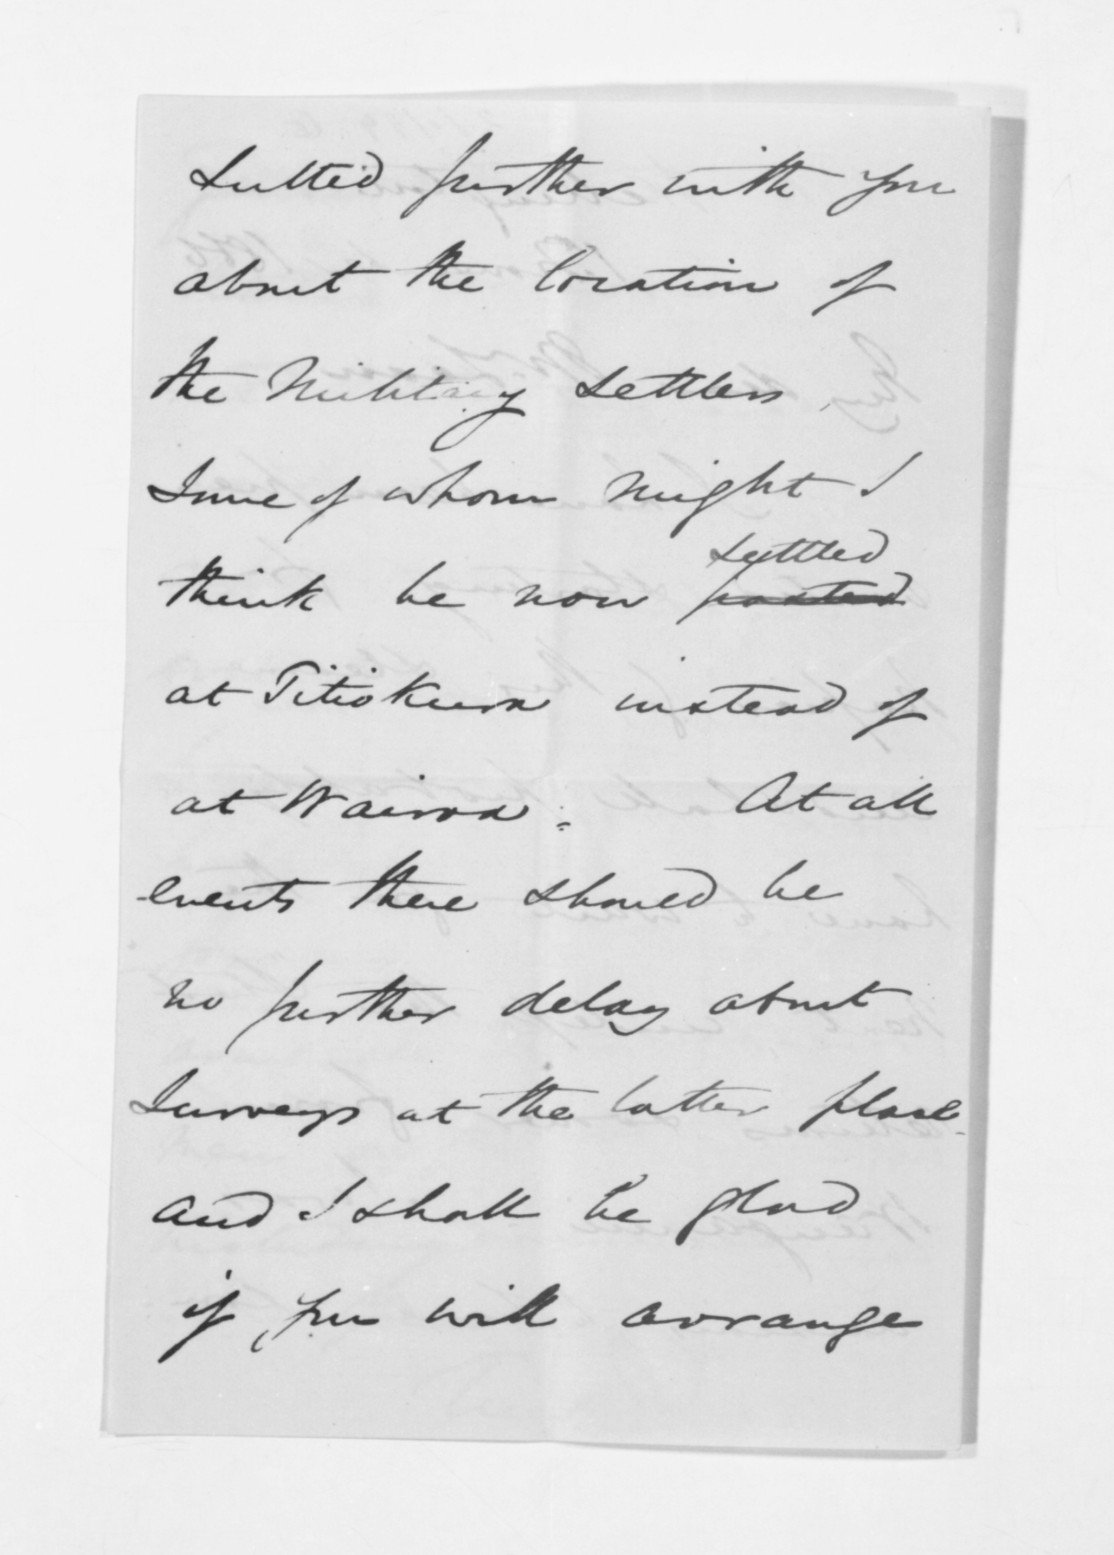 sulted further with you
about the location of
the Military Settlers,
Some of whom might I
think be now settled ~~posted~~
at Titiokura instead of
at Wairoa. At all
events there should be
no further delay about
Surveys at the latter place
and I shall be glad
if you will arrange